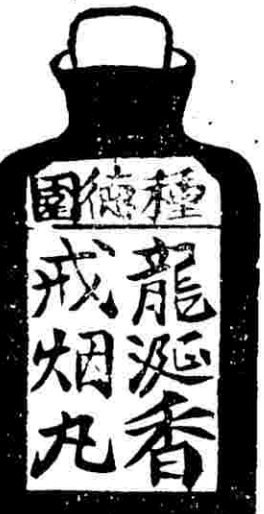 種德園
龍涎香
戒烟丸